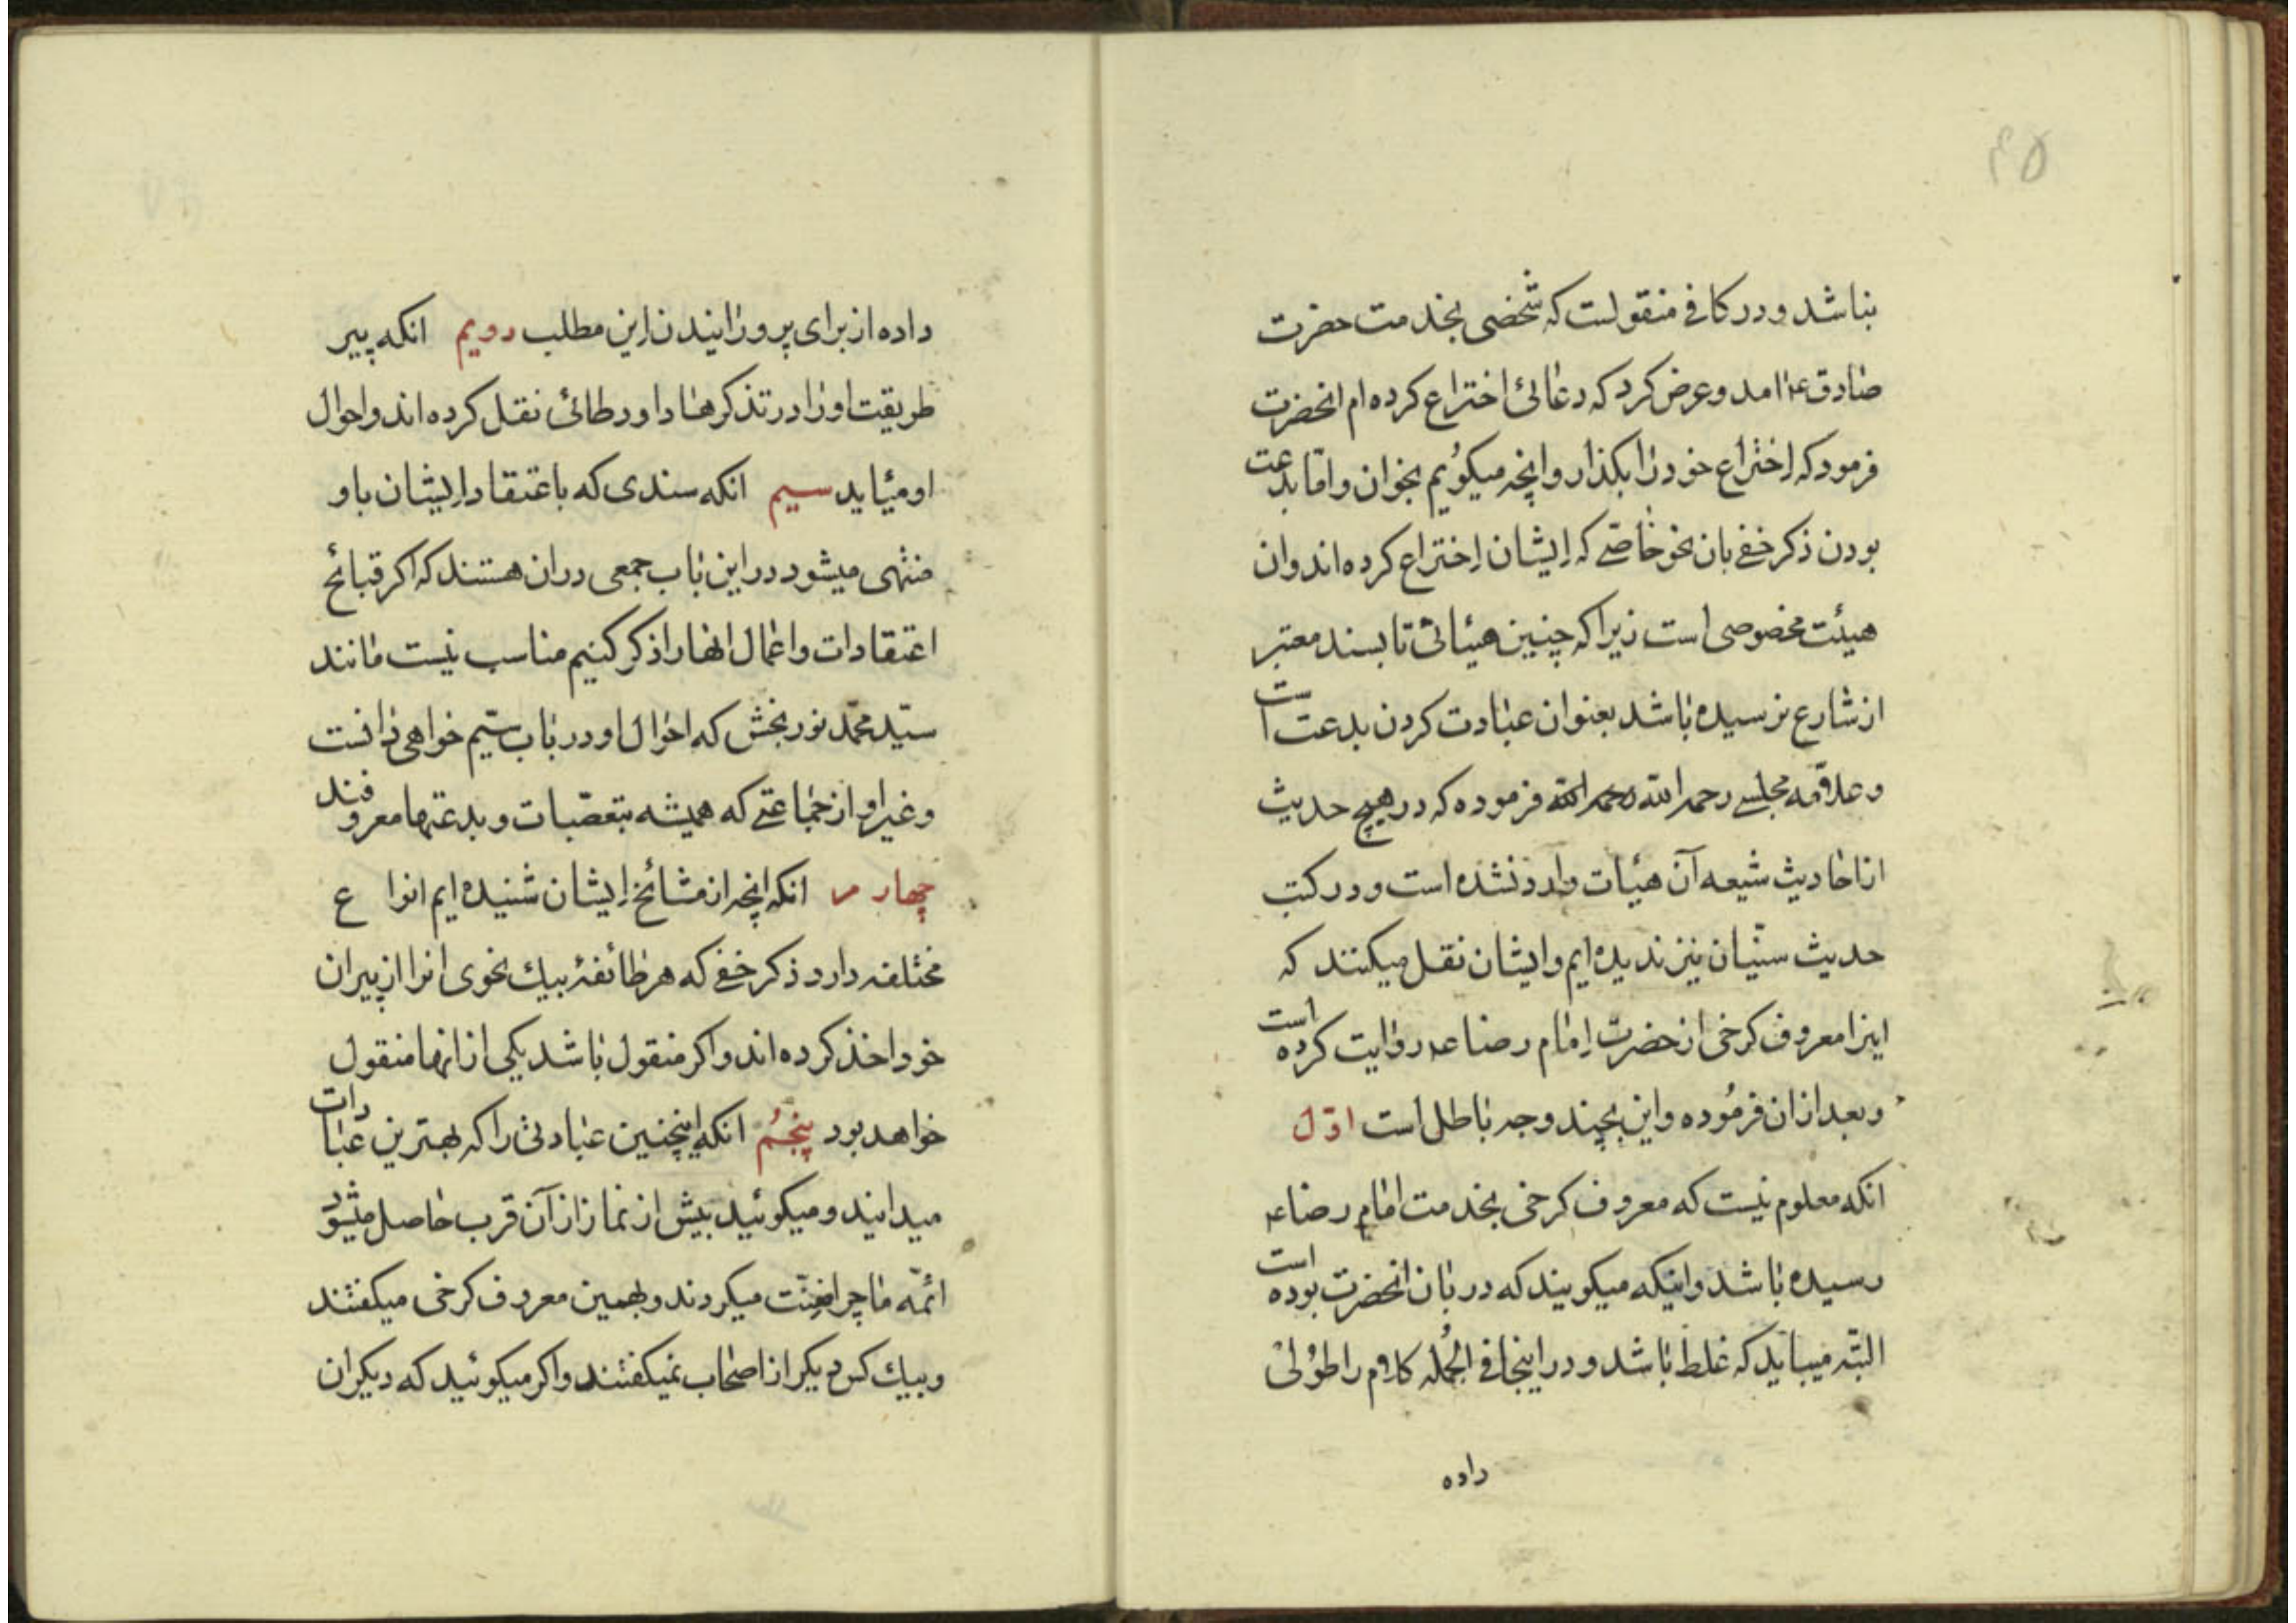 ۴۵
نباشد و در کافے منقولست که شخصی بخدمت حضرت
صادق ع امد و عرض کرد که دعائی اختراع کرده ام انحضرت
فرمود که اختراع خود را بکذار و انچه میکویم بخوان و امّا بدعت
بودن ذکر خفے بان نحو خاصّے که ایشان اختراع کرده اند و ان
هیئت مخصوصی است زیرا که چنین هیئاتی تا بسند معتبر
از شارع نرسیده باشد بعنوان عبادت کردن بدعت است
و علامه مجلسے رحمه الله رحمه الله فرموده که در هیچ حدیث
از احادیث شیعه آن هیئات وارد نشده است و در کتب
حدیث سنّیان نیز ندیده ایم و ایشان نقل میکنند که
اینرا معروف کرخی از حضرت امام رضا ع روایت کرده است
و بعد از ان فرمُوده و این بچند وجه باطل است اوّل
انکه معلوم نیست که معروف کرخی بخدمت امام رضا ع
رسیده باشد و اینکه میکویند که دربان انحضرت بوده است
البتّه میباید که غلط باشد و در اینجا فے الجُمله کلام را طوُلی
داده
داده از برای پرورانیدن این مطلب دویم انکه پیر
طریقت او را در تذکرها داود طائی نقل کرده اند و احوال
او میٔاید سیم انکه سندی که باعتقاد ایشان باو
منتهی میشود در این باب جمعی در ان هستند که اکر قبائح
اعتقادات و اعمال انها را ذکر کنیم مناسب نیست مانند
سیّد محمّد نوربخش که احوال او در باب سیّم خواهی دانست
و غیر او از جماعتے که همیشه بتعصّبات و بدعتها معروفند
چهارم انکه انچه از مشائخ ایشان شنیده ایم انواع
مختلفه دارد ذکر خفے که هر طائفۀ بیك نحوی انرا از پیران
خود اخذ کرده اند و اکر منقول باشد یکی از انها منقول
خواهد بود پنجُم انکه اینچنین عبادتی را که بهترین عبادات
میدانید و میکوئید بیش از نماز از آن قرب حاصل میشود
ائمّه ما چرا ضِنّت میکردند و بهمین معروف کرخی میکفتند
و بیك کس دیکر از اصحاب نمیکفتند و اکر میکوئید که دیکران